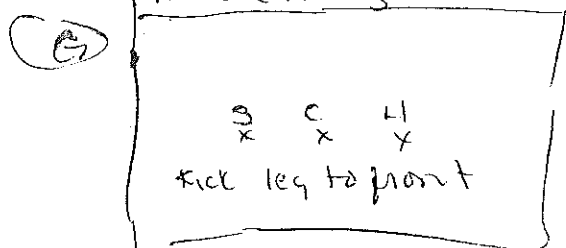 G
S C H
x x x
Kick leg to front